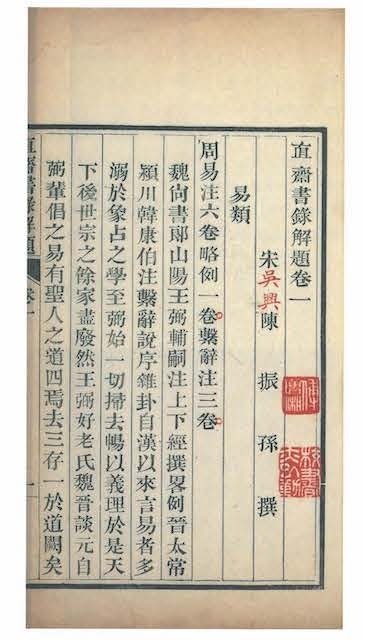 直齋書錄解題卷一
宋吳興陳振孫撰
易類
周易注六卷略例一卷繫辭注三卷
魏尚書郎山陽王弼輔嗣注上下經撰畧例晉太常
潁川韓康伯注繫辭說序雜卦自漢以來言易者多
溺於象占之學至弼始一切掃去暢以義理於是天
下後世宗之餘家盡廢然王弼好老氏魏晉談元自
弼輩倡之易有聖人之道四焉去三存一於道闕矣
直齋書錄解題
卷一
一